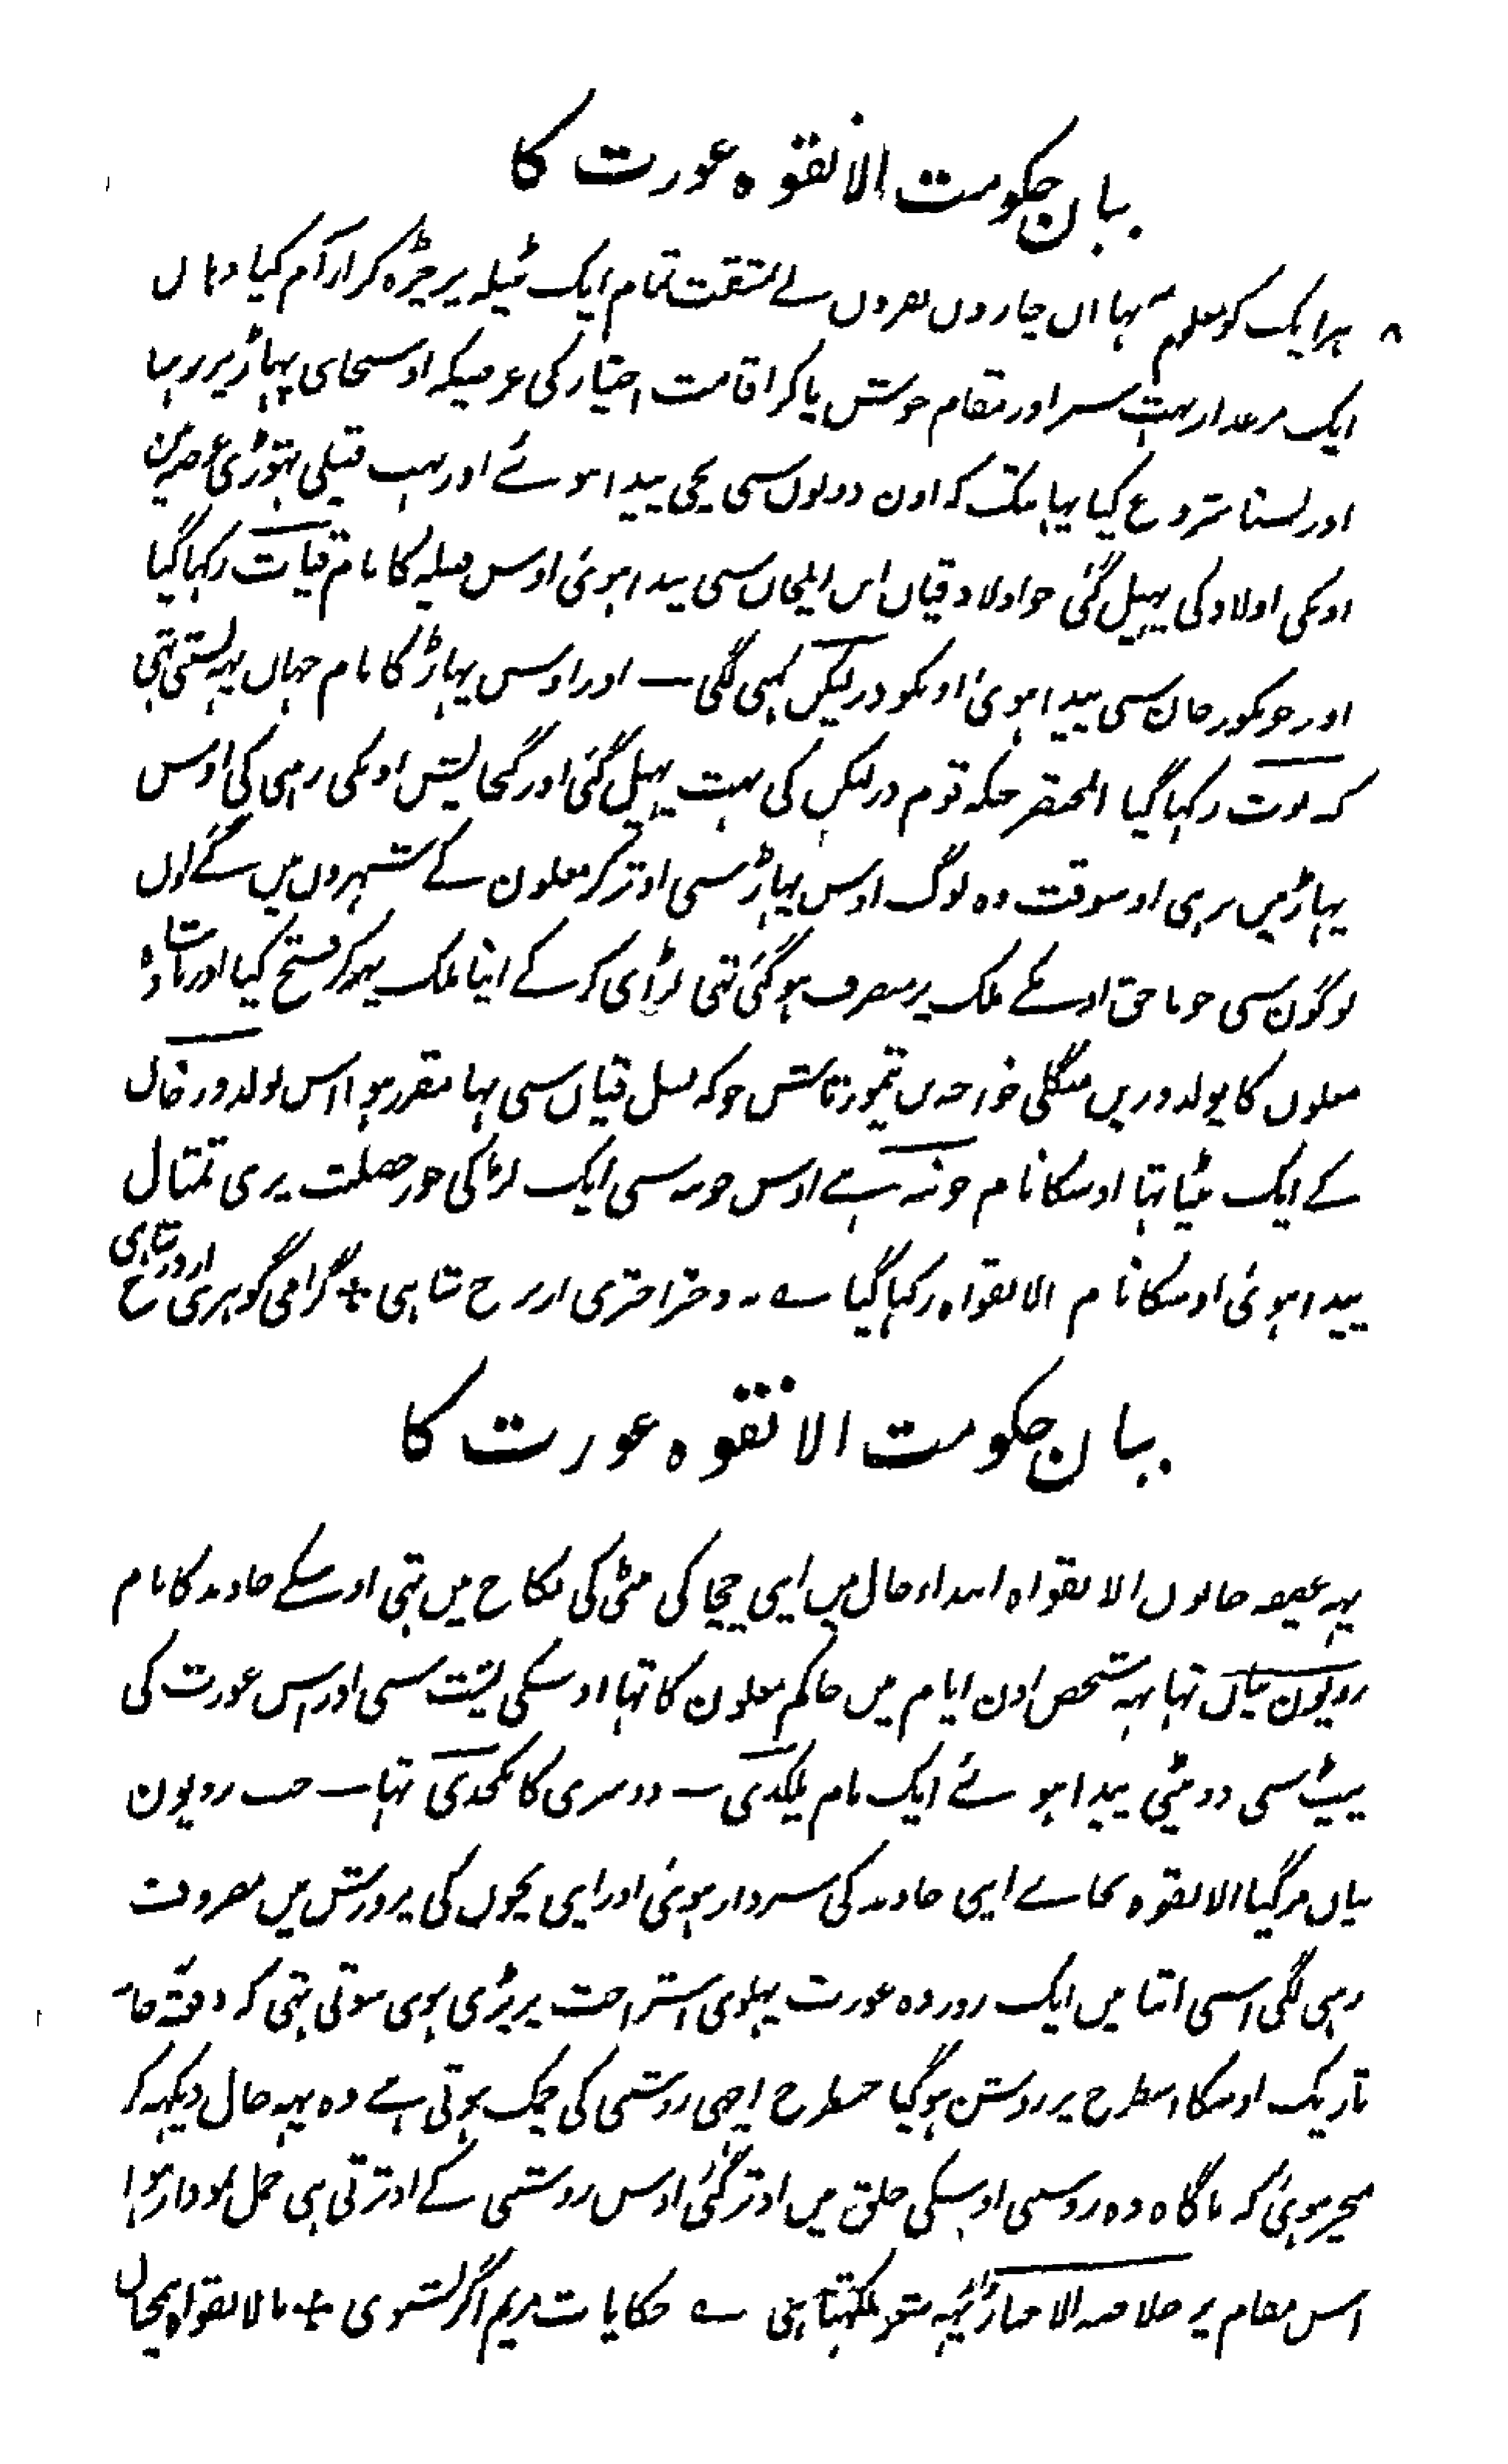 بیان حکومت الانقوہ عورت کا
۸ ہر ایک کو معلوم تہا ان چاروں نفروں نے بمشقت تمام ایک ٹیلہ پر چڑہ کر آرام کیا وہاں
ایک مرغدار بہت سبز اور مقام خوش پا کر اقامت اختیار کی غرضیکہ اوسجای پہاڑ پر رہنا
اور بسنا شروع کیا یہانتک کہ اون دونوں سی بچی پیدا ہوئے اور بہت قبیلی تہوڑی عرصہ میں
اونکی اولاد کی پہیل گئی جو اولاد قیان ابن ایلخان سی پیدا ہوئی اوس قبیلہ کا نام قیات رکہا گیا
اور جو نکوز خان سی پیدا ہوئی اونکو درلیکن کہی لگی ــ اور اوس پہاڑ کا نام جہاں یہہ بستی تہی
کہ نوت رکہا گیا المختصر جبکہ قوم درلیکن کی بہت پہیل گئی اور گنجایش اونکی رہنی کی اوس
پہاڑ میں نرہی اوسوقت وہ لوگ اوس پہاڑ سی اوتر کر مغلون کے شہروں میں گئے اون
لوگون سی جو ناحق اونکے ملک پر متصرف ہو گئی تہی لڑای کر کے اپنا ملک پہر کر فتح کیا اور بادشاہ
مغلوں کا یولدوز بن منگلی خواجہ بن تیمورتاش جو کہ نسل قیان سی تہا مقرر ہوا اس یولدوز خان
کے ایک بیٹا تہا اوسکا نام جونہ ہے اوس جونہ سی ایک لڑکی حور خصلت پری تمثال
پیدا ہوئی اوسکا نام الانقواہ رکہا گیا ؎ دختر اختری از برج شاہی ÷ گرامی گوہری از درج شاہی
بیان حکومت الانقوہ عورت کا
یہہ عفیفہ خاتون الانقواہ ابتداء حال میں اپنی چچا کی بیٹی کی نکاح میں تہی اوسکے خاوند کا نام
روبون بیان تہا یہہ شخص اون ایام میں حاکم مغلون کا تہا اوسکی پشت سی اور اس عورت کی
پیٹ سی دو بیٹی پیدا ہوئے ایک نام یلکدی ــ دوسری کا بکجدی تہا ــ جب روبون
بیان مر گیا الانقوہ بجاے اپنی خاوند کی سردار ہوئی اور اپنی بچوں کی پرورش میں مصروف
رہی لگی اسی اثنا میں ایک روز وہ عورت پہلوی استراحت پر پڑی ہوی سوتی تہی کہ دفعۃً خانہ
تاریک اوسکا اسطرح پر روشن ہو گیا جسطرح اچہی روشنی کی چمک ہوتی ہے وہ یہہ حال دیکہہ کر
متحیر ہوئی کہ ناگاہ وہ روشنی اوسکی حلق میں اوتر گئی اوس روشنی کے اوترتی ہی حمل نمودار ہوا
اس مقام پر خلاصہ الاخبار یہہ شعر لکہتا ہی ؎ حکایات مریم اگر بشنوی ÷ بالانقواہ بیجان